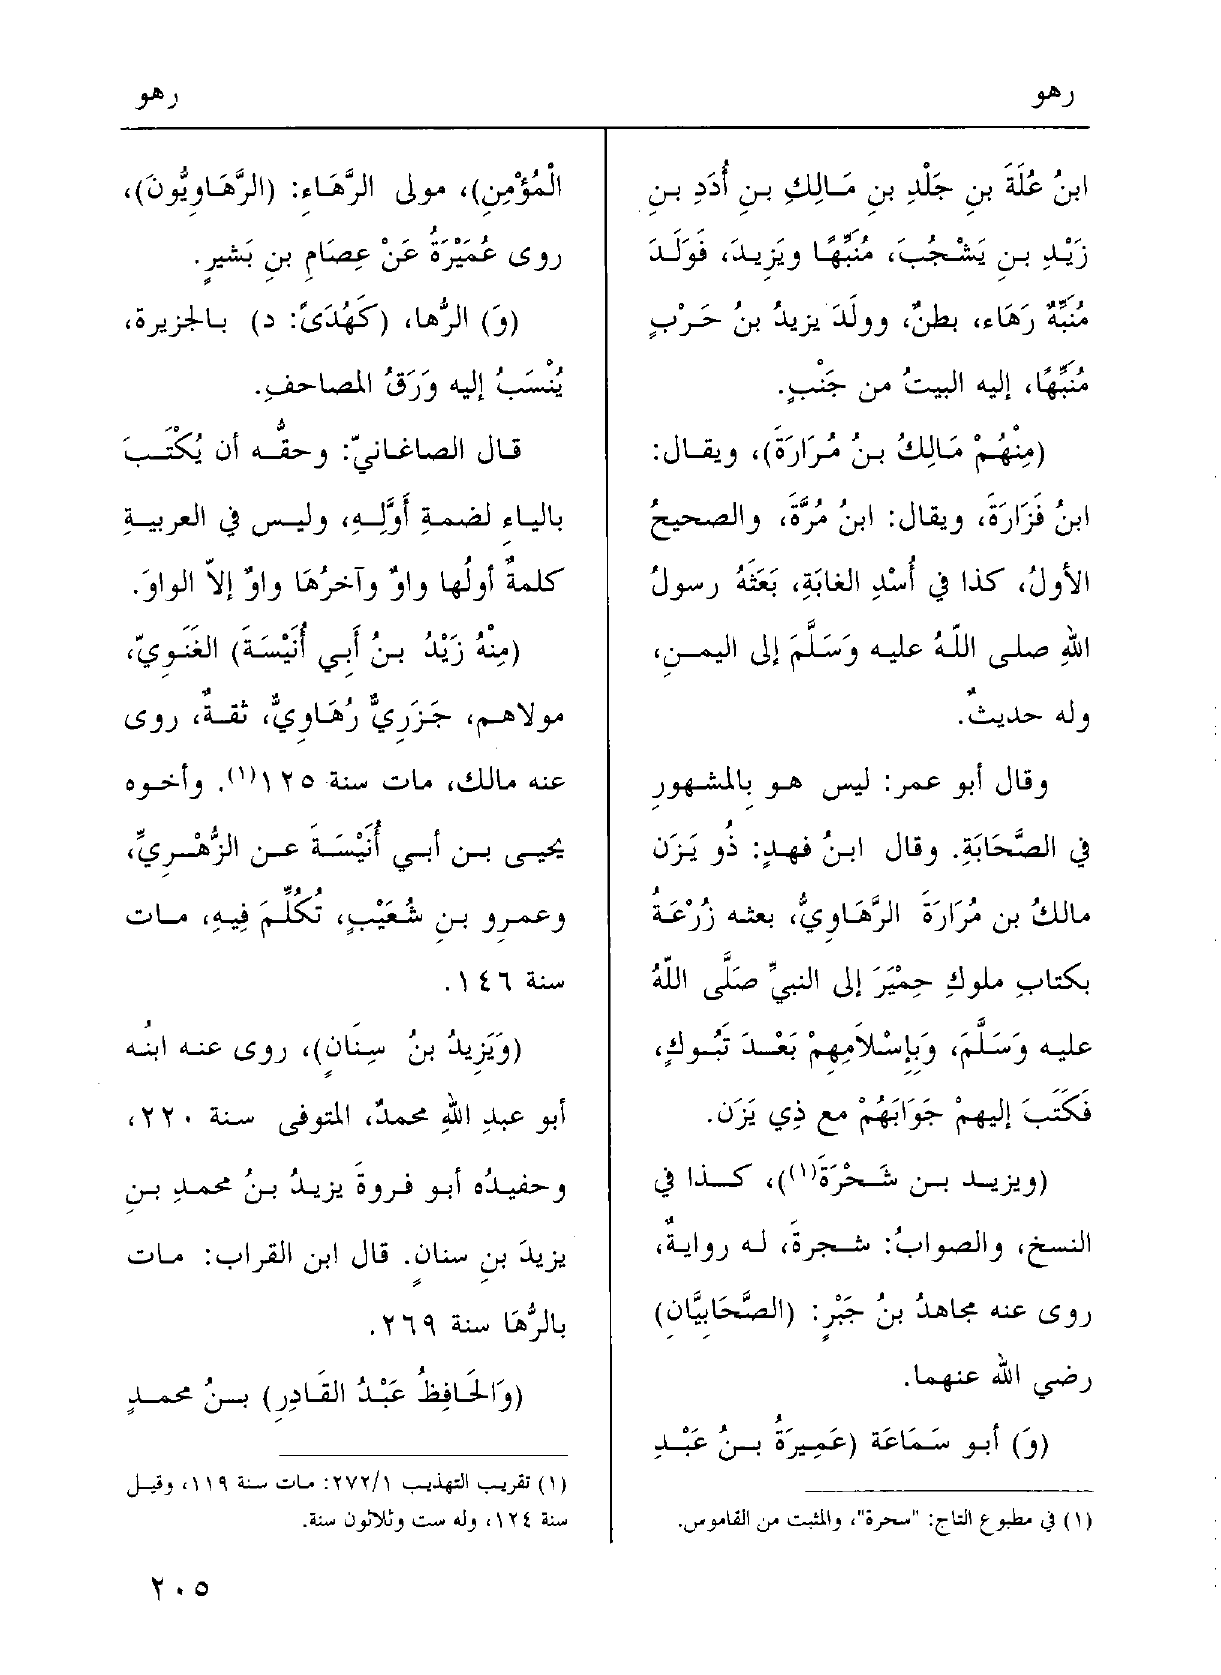 رهو
رهو
ابنُ عُلَةَ بنِ جَلْدِ بنِ مَالِكِ بنِ أُدَدِ بنِ
زَيْدِ بنِ يَشْجُبَ، مُنَبِّهًا ويَزِيدَ، فَوَلَدَ
مُنَبِّهٌ رَهَاء، بطنٌ، وولَدَ يزيدُ بنُ حَرْبٍ
مُنَبِّهًا، إليه البيتُ من جَنْبٍ.
(مِنْهُمْ مَالِكُ بنُ مُرَارَةَ)، ويقال:
ابنُ فَزَارَةَ، ويقال: ابنُ مُرَّةَ، والصحيحُ
الأولُ، كذا في أُسْدِ الغابَةِ، بَعَثَهُ رسولُ
اللهِ صلى اللّهُ عليه وَسَلَّمَ إلى اليمنِ،
وله حديثٌ.
وقال أبو عمر: ليس هو بِالمشهورِ
في الصَّحَابَةِ. وقال ابنُ فهدٍ: ذُو يَزَن
مالكُ بن مُرَارَةَ الرَّهَاوِيُّ، بعثه زُرْعَةُ
بكتابِ ملوكِ حِمْيَرَ إلى النبيِّ صَلَّى اللّهُ
عليه وَسَلَّمَ، وَبِإسْلاَمِهِمْ بَعْدَ تَبُوكٍ،
فَكَتَبَ إليهمْ جَوَابَهُمْ مع ذِي يَزَن.
(ويزيد بن شَحْرَةَ(١))، كذا في
النسخ، والصوابُ: شجرةَ، له روايةٌ،
روى عنه مجاهدُ بنُ جَبْرٍ: (الصَّحَابِيَّانِ)
رضي الله عنهما.
(وَ) أبو سَمَاعَة (عَمِيرَةُ بنُ عَبْدِ
(١) في مطبوع التاج: "سحرة"، والمثبت من القاموس.
الْمُؤْمِنِ)، مولى الرَّهَاءِ: (الرَّهَاوِيُّونَ)،
روى عُمَيْرَةُ عَنْ عِصَامِ بنِ بَشيرٍ.
(وَ) الرُّها، (كَهُدَىً: د) بالجزيرة،
يُنْسَبُ إليه وَرَقُ المصاحفِ.
قال الصاغانيّ: وحقُّه أن يُكْتَبَ
بالياءِ لضمةِ أوَّلِهِ، وليس في العربيةِ
كلمةٌ أولُها واوٌ وآخرُهَا واوٌ إلاّ الواوَ.
(مِنْهُ زَيْدُ بنُ أَبي أُنَيْسَةَ) الغَنَوِيّ،
مولاهم، جَزَرِيٌّ رُهَاوِيٌّ، ثقةٌ، روى
عنه مالك، مات سنة ١٢٥(١). وأخوه
يحيى بن أبي أُنَيْسَةَ عن الزُّهْرِيِّ،
وعمرو بنِ شُعَيْبٍ، تُكُلِّمَ فِيهِ، مات
سنة ١٤٦.
(وَيَزِيدُ بنُ سِنَانٍ)، روى عنه ابنُه
أبو عبدِ اللهِ محمدٌ، المتوفى سنة ٢٢٠،
وحفيدُه أبو فروةَ يزيدُ بنُ محمدِ بنِ
يزيدَ بنِ سنانٍ. قال ابن القراب: مات
بالرُّهَا سنة ٢٦٩.
(وَالحَافِظُ عَبْدُ القَادِرِ) بنُ محمدٍ
(١) تقريب التهذيب ٢٧٢/١: مات سنة ١١٩، وقيل
سنة ١٢٤، وله ست وثلاثون سنة.
٢٠٥